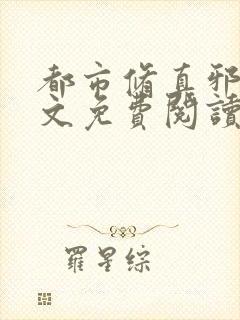 都市脩真邪
文免費閱讀
羅星綜